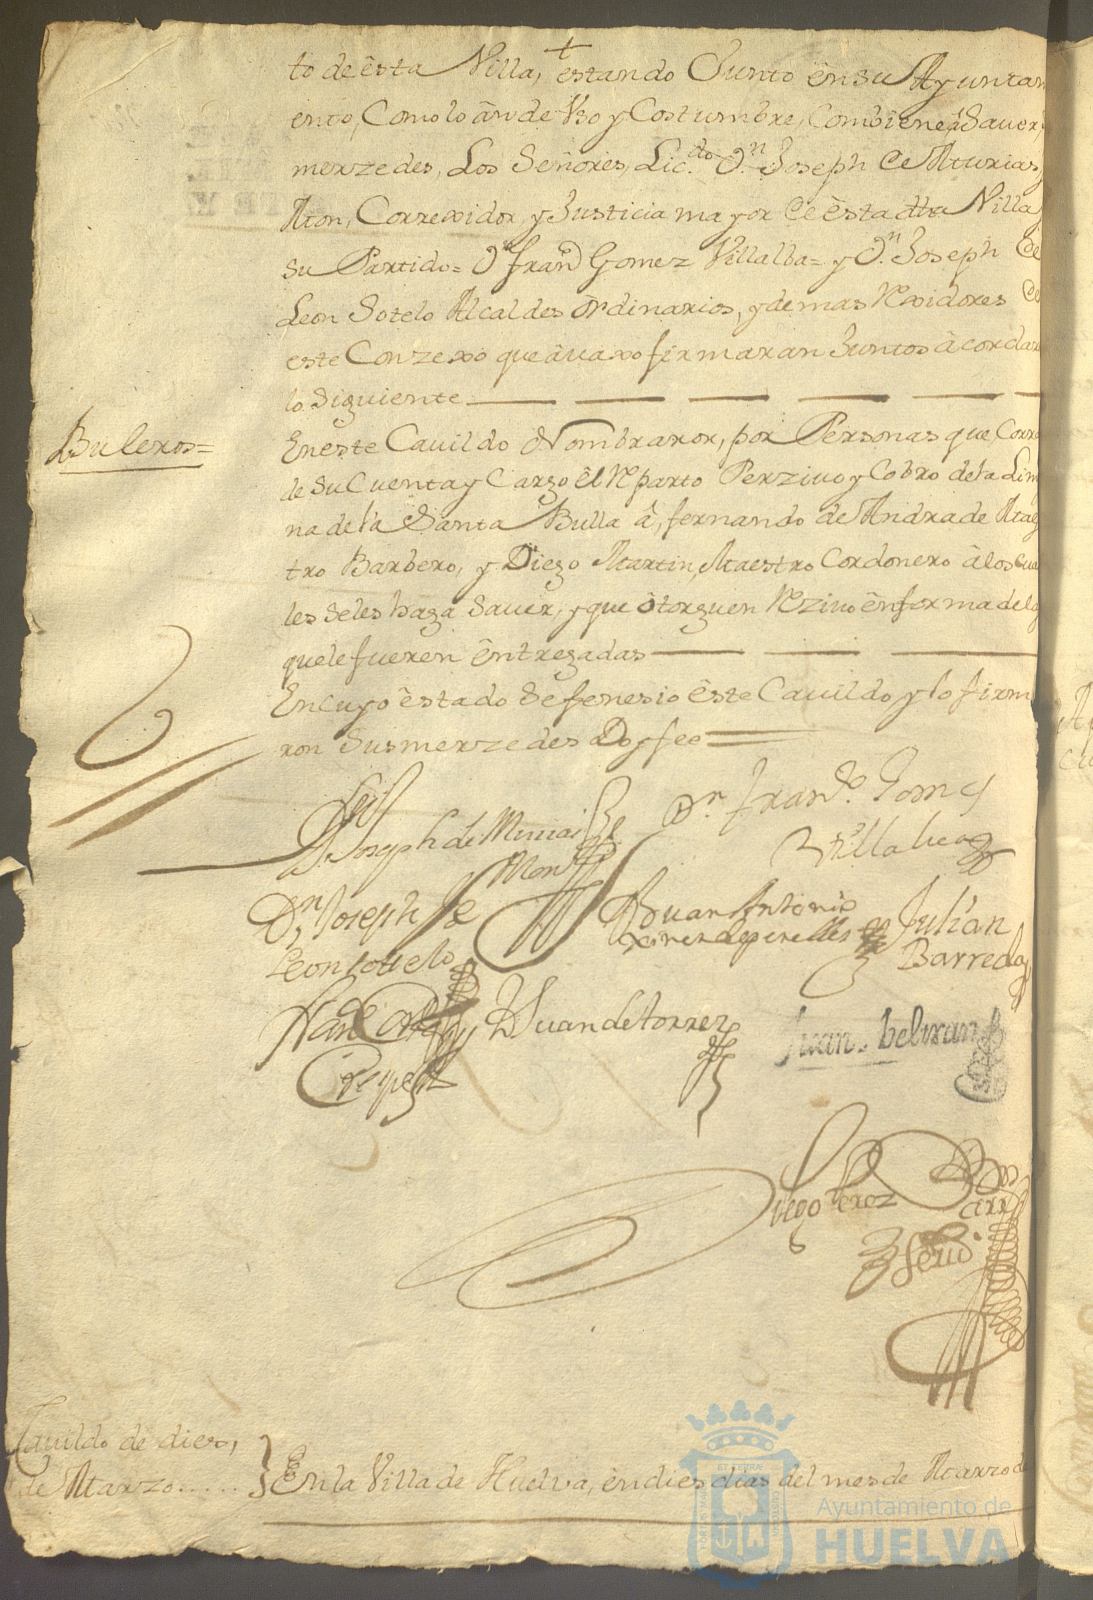 to de ésta Villa, estando Junto ên su Ayuntam
ento, Como lo ân de Vso y Costumbre, Combiene â Saver,
merzedes, Los Señores, Lic.do Dn. Joseph de
Mon, Correxidor, y Justicia mayor de êsta dha Villa
su Partido= Dn fran.co Gomez Villalba= y Dn. Joseph de
Leon Sotelo Alcaldes Ordinarios, y demas Rexidores de
este Conzexo que âvaxo firmaran Juntos âcordar
lo Siguiente
Buleros=
En este Cavildo Nombraron, por Personas que Corr
de Su Cuenta y Cargo êl Rparto Perzivo y Cobro de la Lim
na de la Santa Bulla â, fernando de Andrade Maes
tro Barbero, y Diego Martin, Maestro Cordonero â los Cua
les Seles haga Saver, y que ôtorguen Rzivo ên forma de la
que le fueren êntregadas
En cuyo êstado Se fenesio êste Cavildo y lo firm
ron Sus merzedes Doy fee
Joseph de
Mon
Dn Fran.co Gomes
Villalba
Dn Joseph de
Leon Sotelo
Juan Antonio
Julian
Barreda
Crespo
Juan de torres
Juan. beltran
Diego Perez
Cavildo de dies,
de Marzo.....
En la Villa de Huelva, ên dies dias del mes de Marzo de
Ayuntamiento de
HUELVA